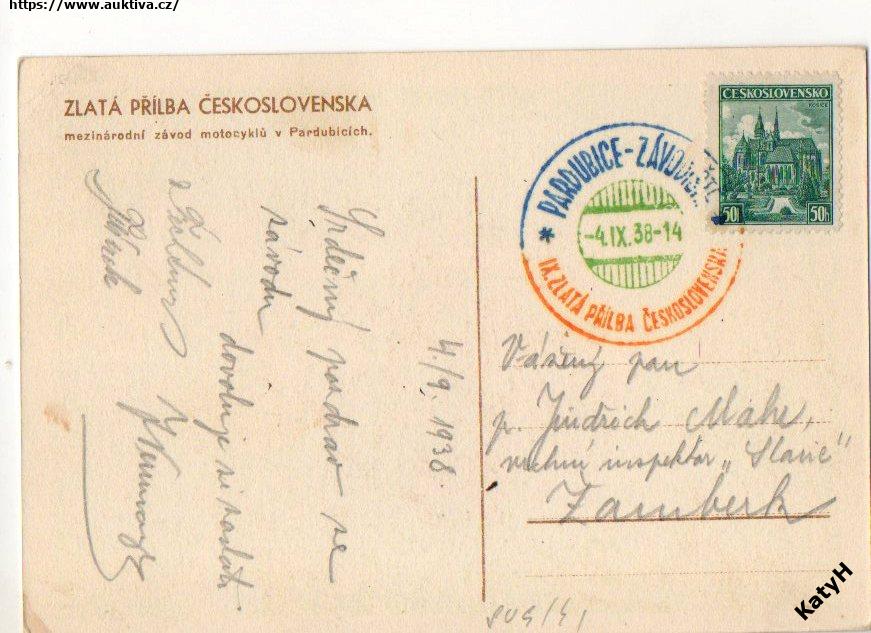 https://www.auktiva.cz/
ZLATÁ PŘÍLBA ČESKOSLOVENSKA
mezinárodní závod motocyklů v Pardubicích.
ČESKOSLOVENSKO
KOŠICE
50 50h
PARDUBICE-ZÁVODIŠTĚ
* -4.IX.38-14
IX.ZLATÁ PŘÍLBA ČESKOSLOVENSKA
4./9. 1938.
Srdečný pozdrav ze
závodu
dovoluje si zaslati
Vážený pan
p. Jindřich Mahe,
vrchní inspektor „Slavie"
Žamberk
KatyH